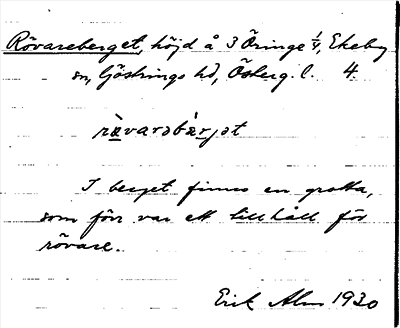 Rövareberget, höjd å 3 Öringe 1/4, Ekeby
sn, Göstrings hd, Österg. l. 4.
rövarəbärjət
I berget finnes en grotta,
som förr var ett tillhåll för
rövare.
Erik Alm 1930